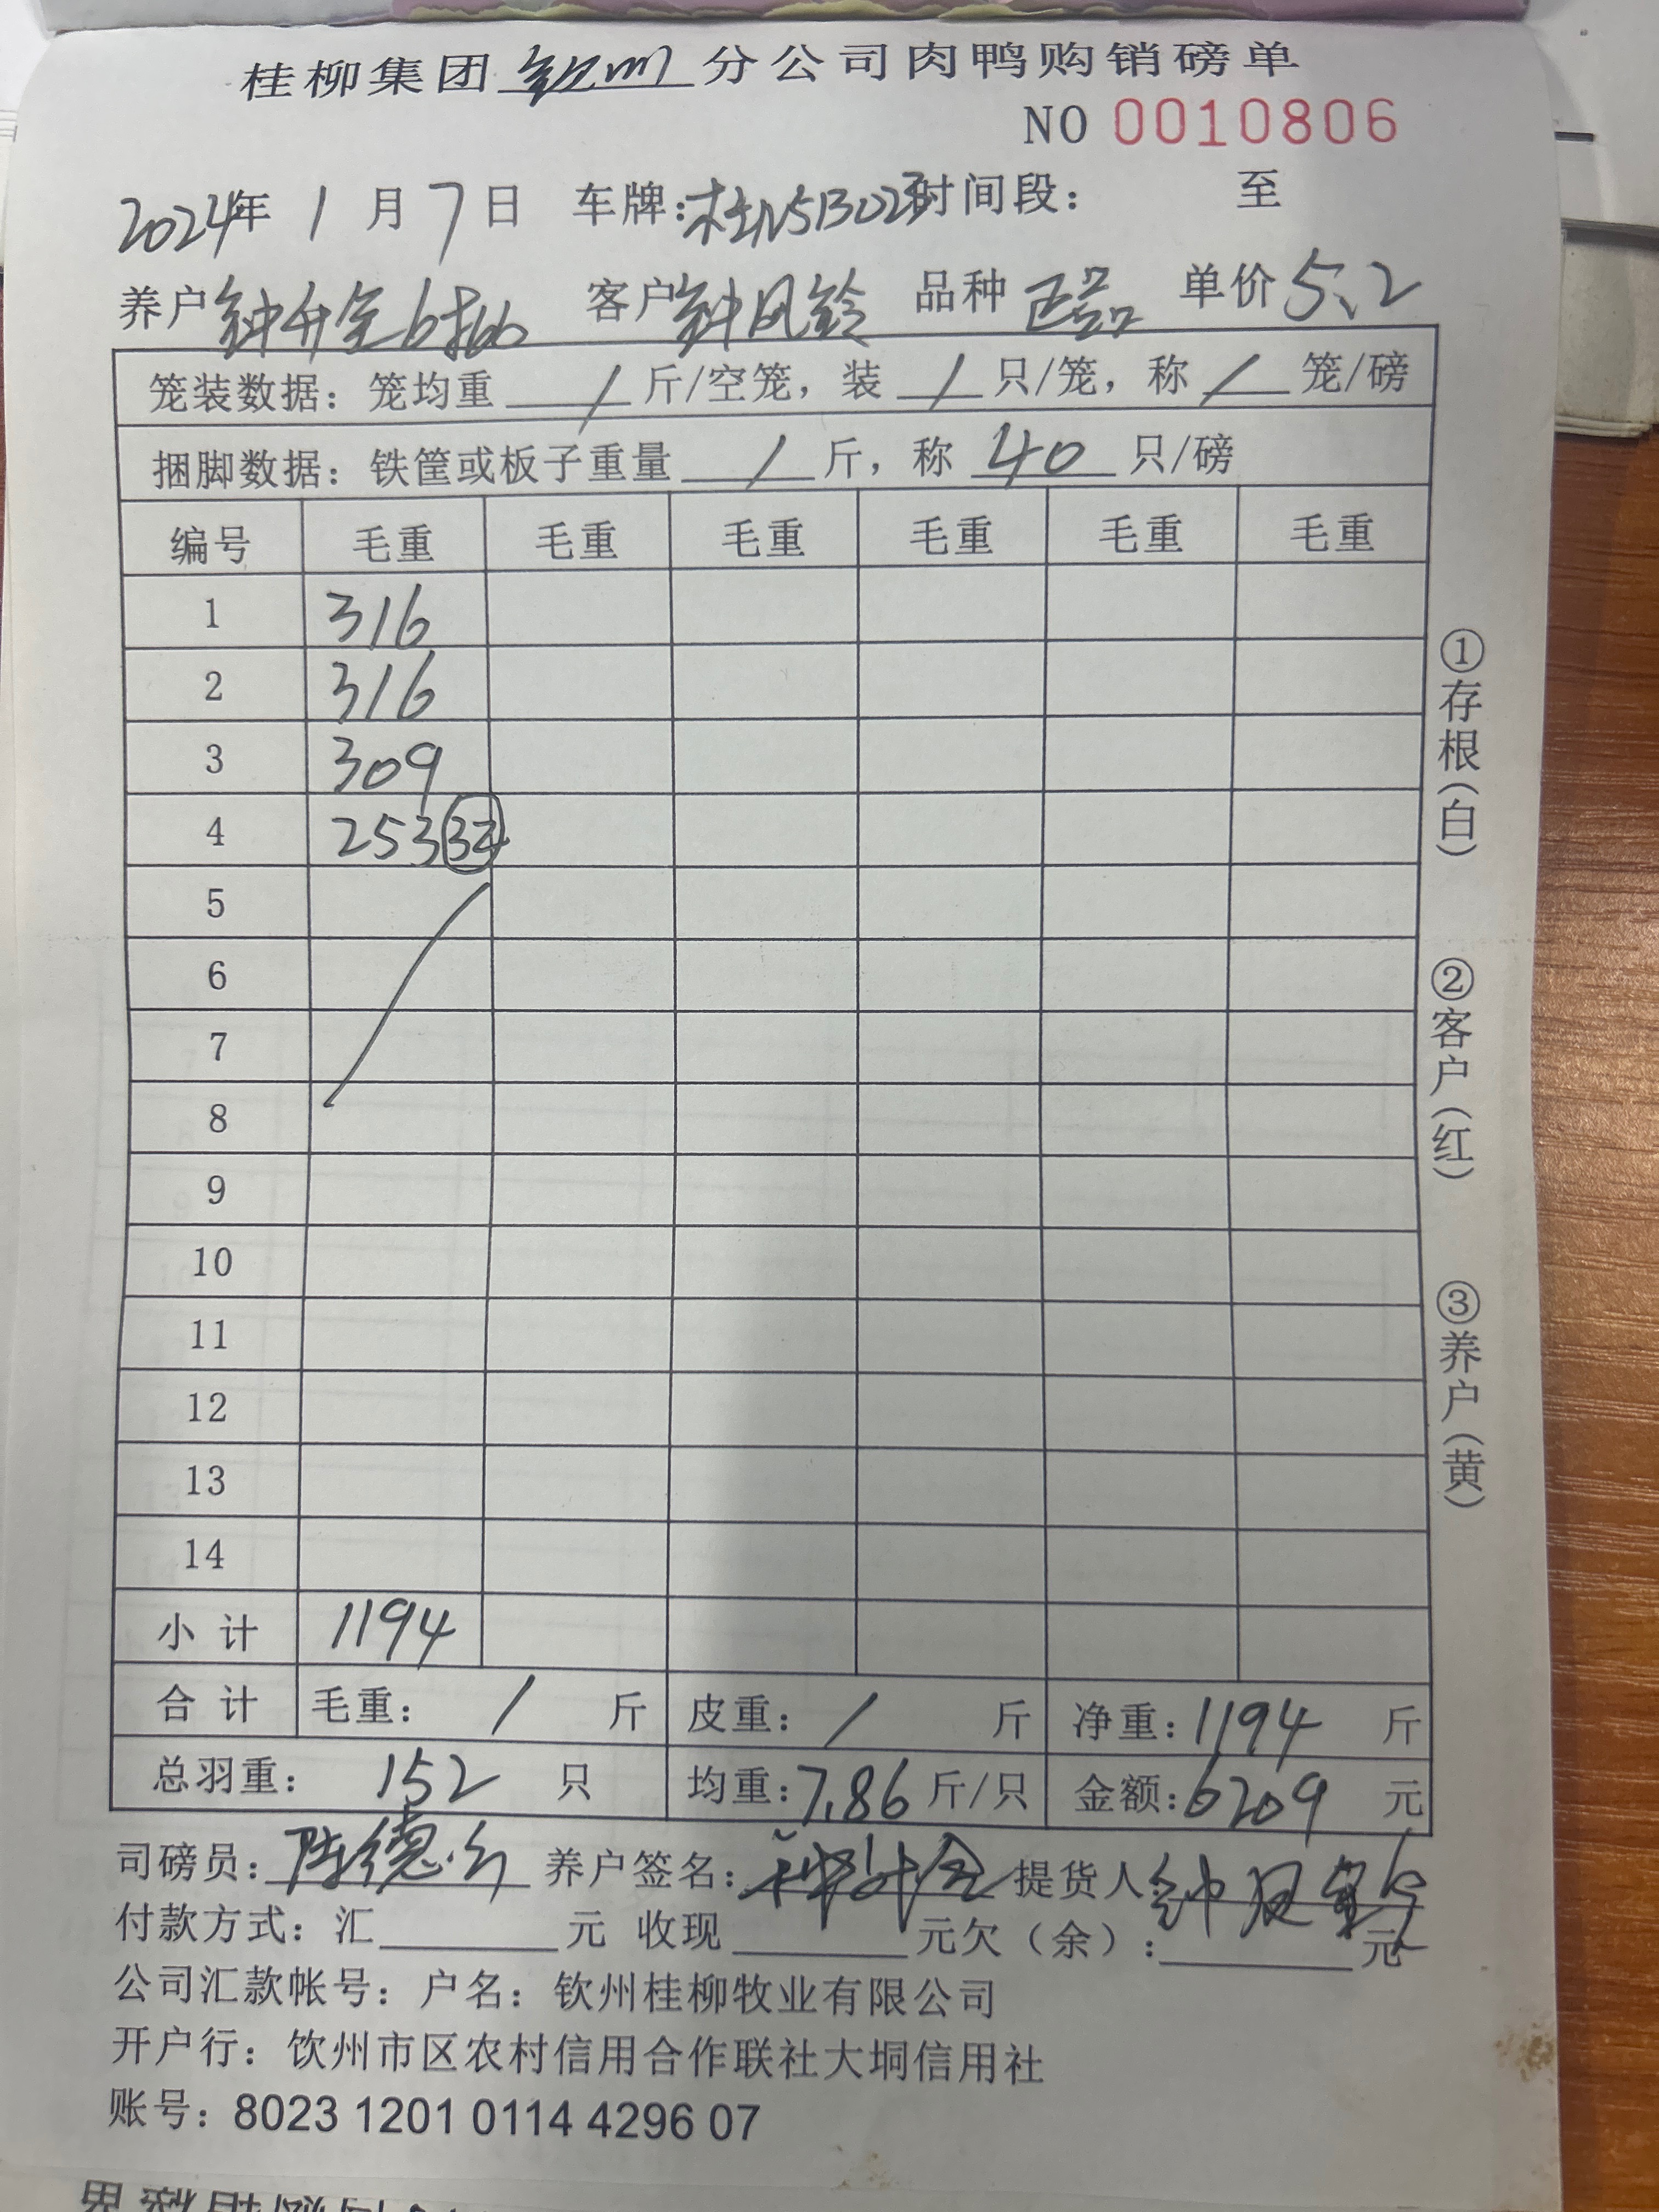 桂柳集团钦州分公司肉鸭购销磅单
NO 0010806
2024年 1 月 7 日 车牌: 时间段: 至
养户钟升全6批 客户钟凤铃 品种 正品 单价5.2
笼装数据: 笼均重 / 斤/空笼, 装 / 只/笼, 称 / 笼/磅
捆脚数据: 铁筐或板子重量 / 斤, 称 40 只/磅
编号 毛重 毛重 毛重 毛重 毛重 毛重
1 316
2 316
3 309
4 253 32
5
6
7
8
9
10
11
12
13
14
小计 1194
合计 毛重: / 斤 皮重: / 斤 净重: 1194 斤
总羽重: 152 只 均重: 7.86 斤/只 金额: 6209 元
司磅员: 陈德 养户签名: 钟升全 提货人: 钟凤铃
付款方式: 汇 元 收现 元欠(余): 元
公司汇款帐号: 户名: 钦州桂柳牧业有限公司
开户行: 饮州市区农村信用合作联社大垌信用社
账号: 8023 1201 0114 4296 07
①存根(白)
②客户(红)
③养户(黄)